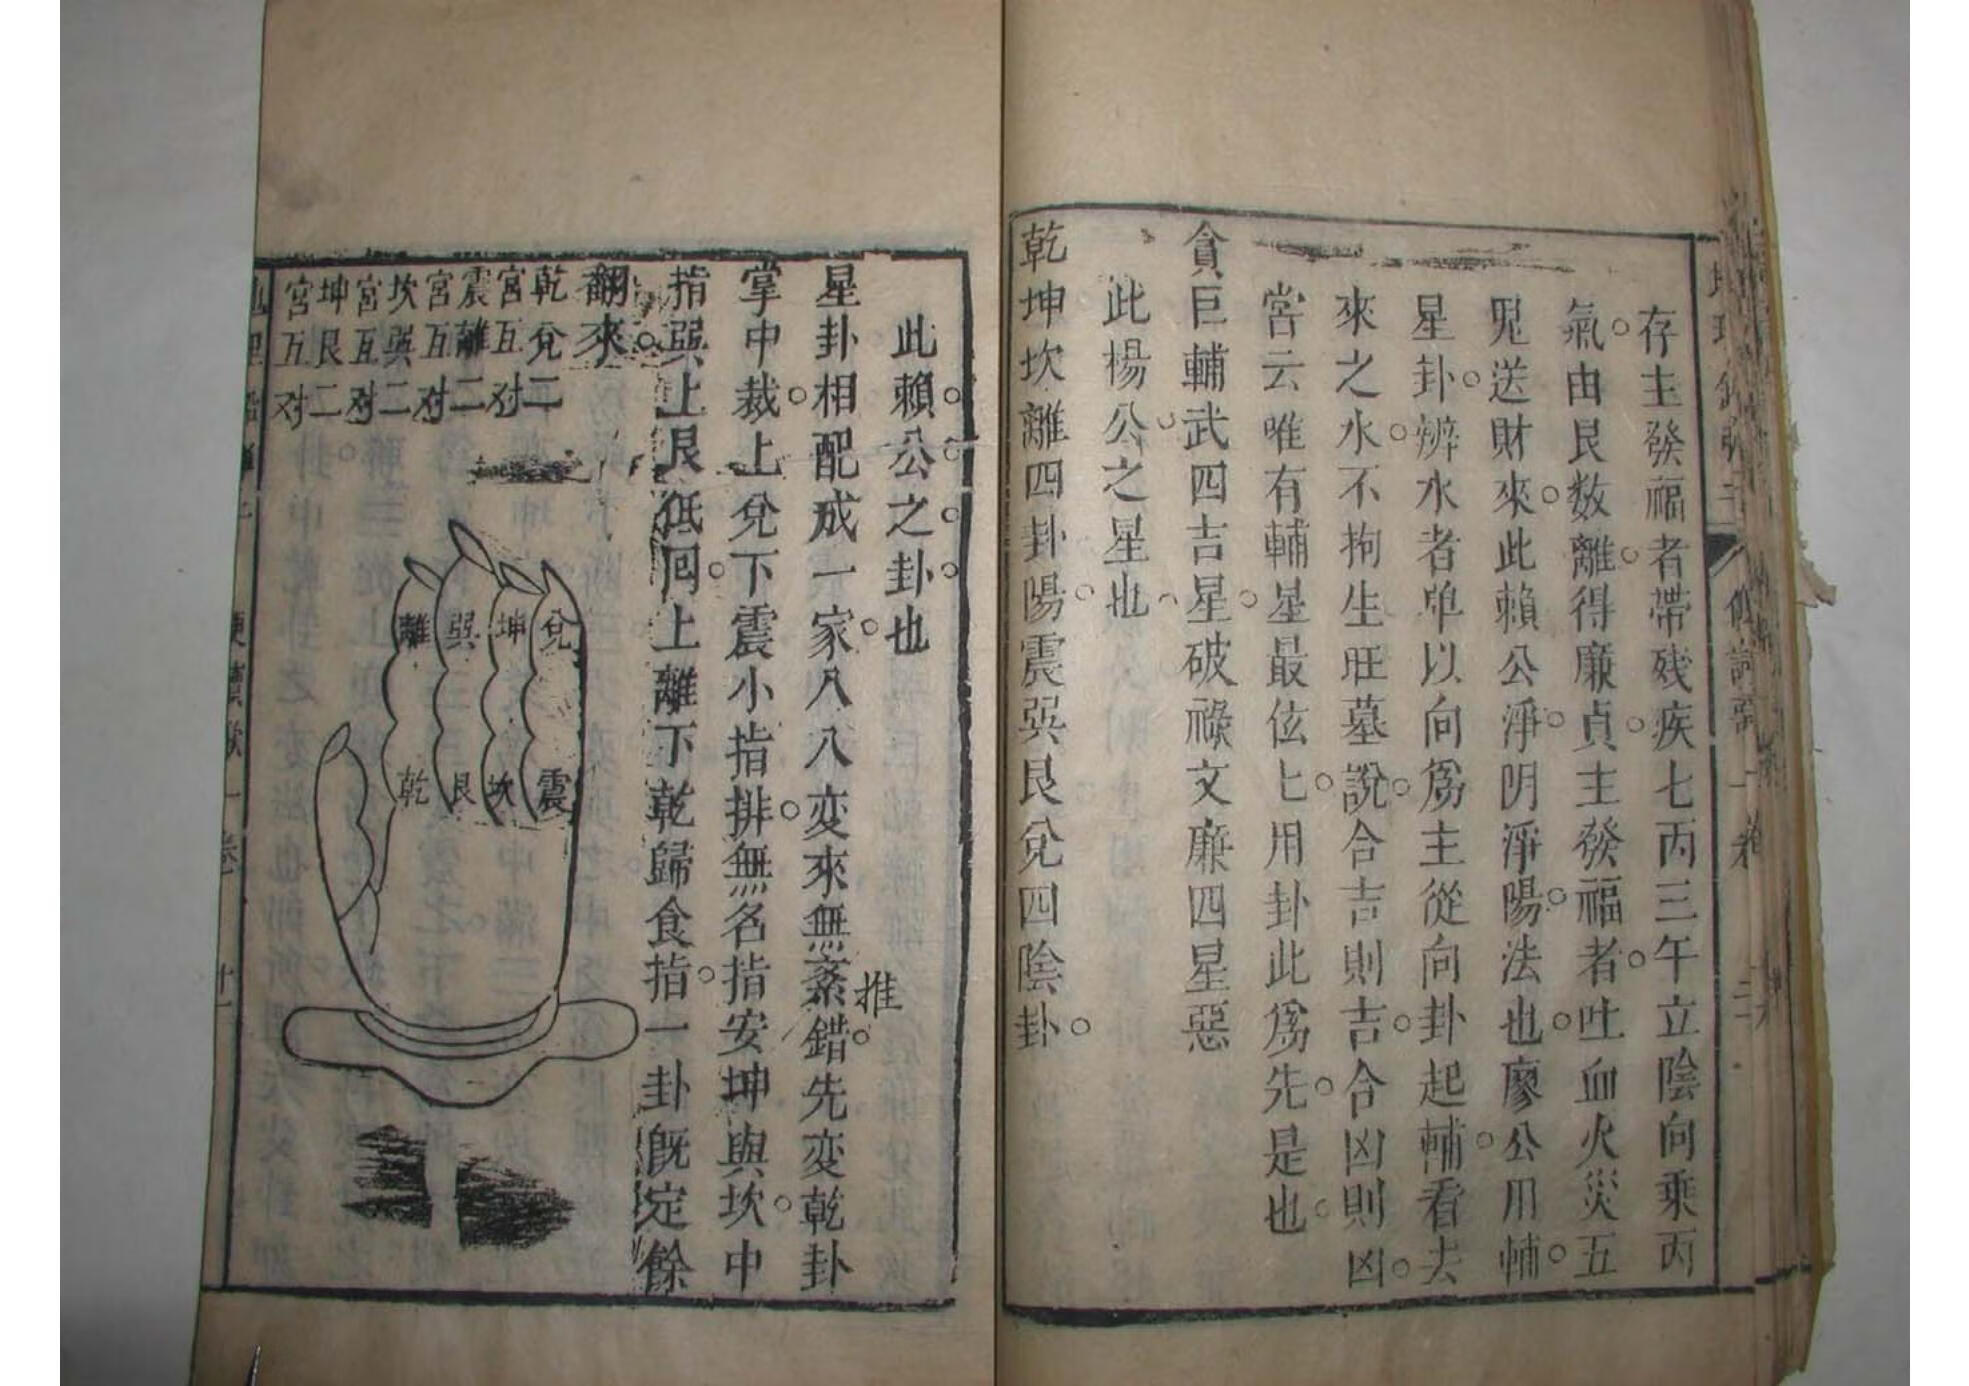 存主發福者帶残疾七丙三午立陰向乘丙
氣由艮数離得廉貞主發福者吐血火災五
鬼送財來此賴公淨阴淨陽法也廖公用輔
星卦辨水者单以向為主從向卦起輔看去
來之水不拘生旺墓說合吉則吉合凶則凶
甞云唯有輔星最伭上用卦此為先是也
貪巨輔武四吉星破祿文廉四星惡
此楊公之星也
乾坤坎離四卦陽震巽艮兌四陰卦
此賴公之卦也
星卦相配成一家八八变來無紊錯先变乾卦
推
掌中裁上兌下震小指排無名指安坤與坎中
指巽上艮低回上離下乾歸食指一卦既定餘
翻來
乾兌二
宮互对
震離二
宮互对
坎巽二
宮互对
坤艮二
宮互对
兌
坤
巽
離
震
坎
艮
乾